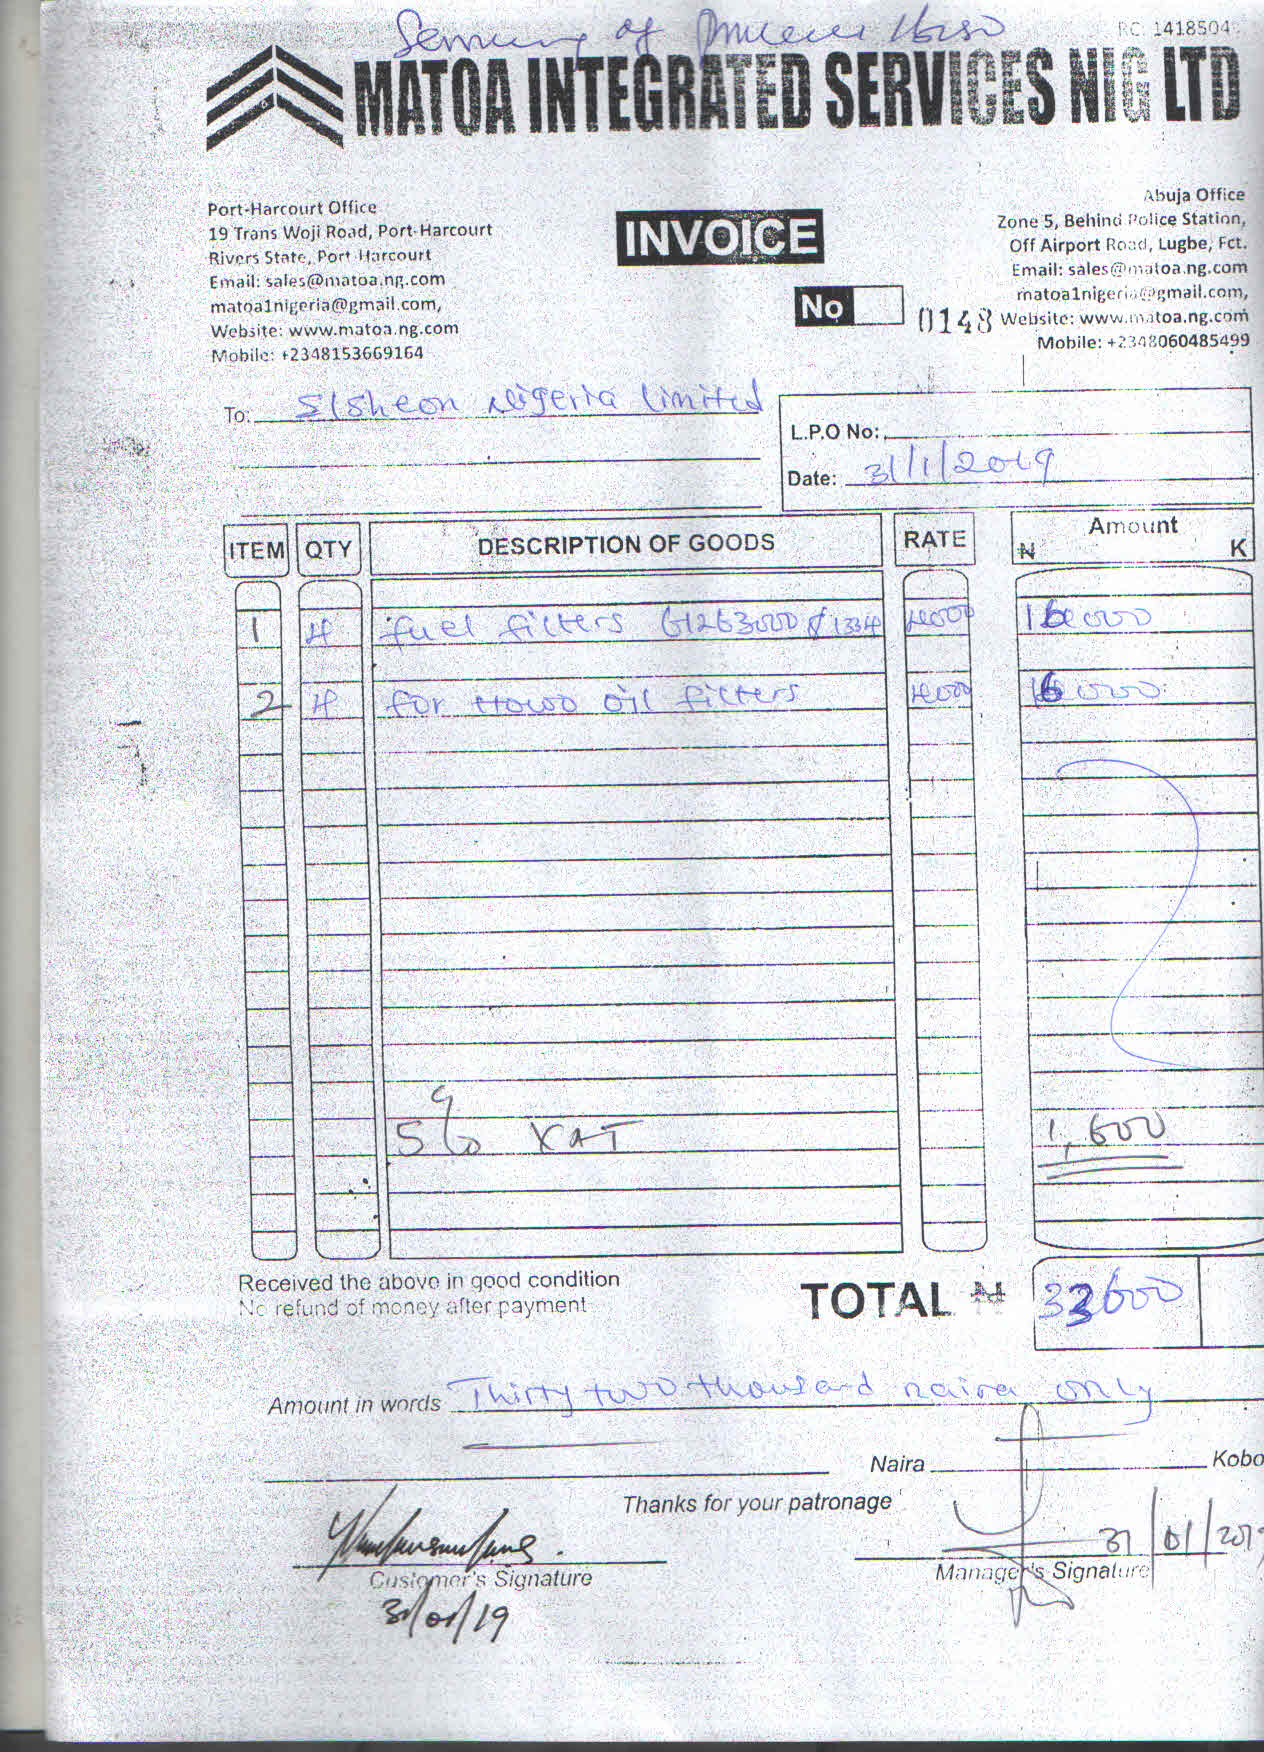 RC: 1418504
MATOA INTEGRATED SERVICES NIG LTD
Port-Harcourt Office
19 Trans Woji Road, Port-Harcourt
Rivers State, Port Harcourt
Email: sales@matoa.ng.com
matoa1nigeria@gmail.com,
Website: www.matoa.ng.com
Mobile: +2348153669164
INVOICE
No 0148
Abuja Office
Zone 5, Behind Police Station,
Off Airport Road, Lugbe, Fct.
Email: sales@matoa.ng.com
matoa1nigeria@gmail.com,
Website: www.matoa.ng.com
Mobile: +2348060485499
To: Elsheon Nigeria Limited
L.P.O No:
Date: 31/1/2019
ITEM QTY DESCRIPTION OF GOODS RATE Amount
₦ K
1 4 fuel filters 4000 16000
2 4 for Howo oil filters 4000 16000
5% VAT 1,600
Received the above in good condition
No refund of money after payment
TOTAL ₦ 33600
Amount in words Thirty two thousand naira only
Naira Kobo
Thanks for your patronage
31/01/2019
Customer's Signature
Manager's Signature
31/01/19